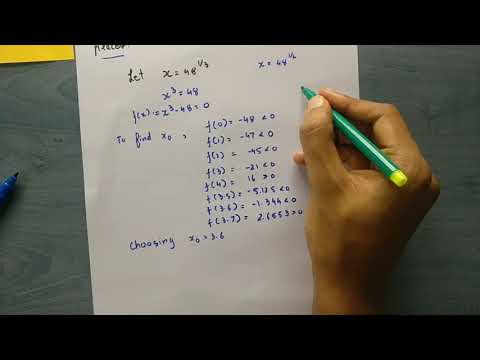 Let x = 48^1/3 x = 48^1/2
x³ = 48
f(x) = x³-48 = 0
To find x₀, f(0) = -48 < 0
f(1) = -47 < 0
f(2) = -45 < 0
f(3) = -21 < 0
f(4) = 16 > 0
f(3.5) = -5.125 < 0
f(3.6) = -1.344 < 0
f(3.7) = 2.6553 > 0
Choosing x₀ = 3.6